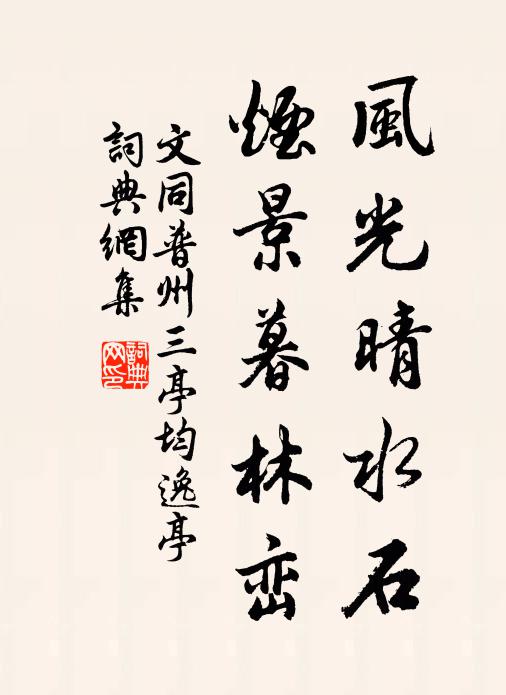 風光晴水石
煙景暮林峦
文同普州三亭均逸亭
詞典網集
詞典網印